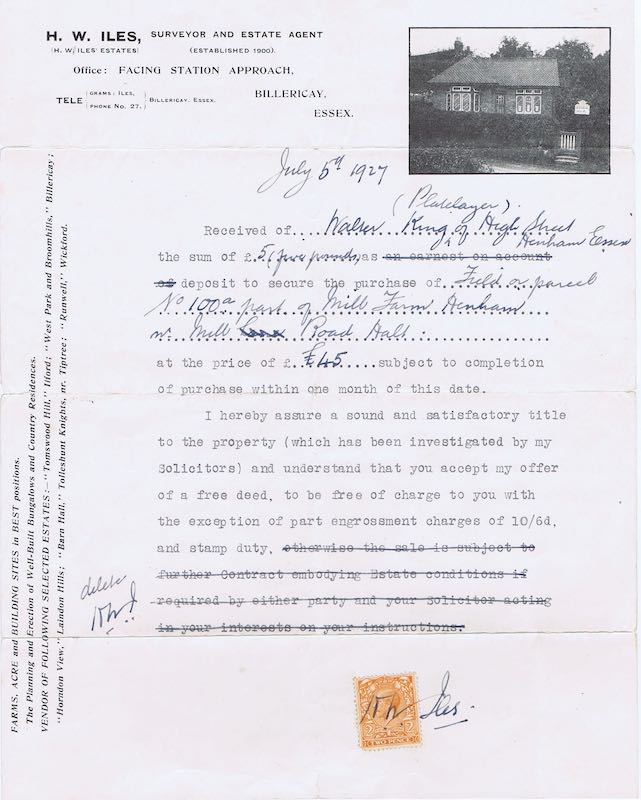 H. W. ILES, SURVEYOR AND ESTATE AGENT
(H. W. ILES' ESTATES) (ESTABLISHED 1900).
Office: FACING STATION APPROACH,
TELE GRAMS: ILES, PHONE No. 27, BILLERICAY. ESSEX.
BILLERICAY,
ESSEX.
July 5th 1927
(Platelayer).
Received of....Walter King of High Street
Henham Essex
the sum of £.5.(five pounds) as an earnest on account
of deposit to secure the purchase of Field or parcel
No 100a part of Mill Farm Henham
nr Mill Road Halt:
at the price of £ £45.....subject to completion
of purchase within one month of this date.
I hereby assure a sound and satisfactory title
to the property (which has been investigated by my
Solicitors) and understand that you accept my offer
of a free deed, to be free of charge to you with
the exception of part engrossment charges of 10/6d,
and stamp duty, otherwise the sale is subject to
further Contract embodying Estate conditions if
required by either party and your Solicitor acting
in your interests on your instructions.
delete
HWI
HW Iles.
TWO PENCE
FARMS, ACRE and BUILDING SITES in BEST positions.
The Planning and Erection of Well-Built Bungalows and Country Residences.
VENDOR OF FOLLOWING SELECTED ESTATES:—"Tomswood Hill," Ilford; "West Park and Broomhills," Billericay;
"Horndon View," Laindon Hills; "Barn Hall," Tolleshunt Knights, nr. Tiptree; "Runwell," Wickford.